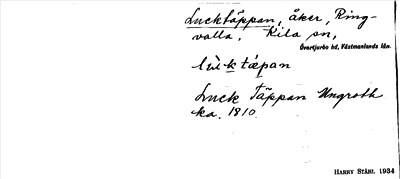 Lucktäppan, åker, Ring-
valla, Kila sn,
Övertjurbo hd, Västmanlands län.
lùk tǽpan
Luck Täppan Ungroth
ka. 1810
HARRY STÅHL 1934